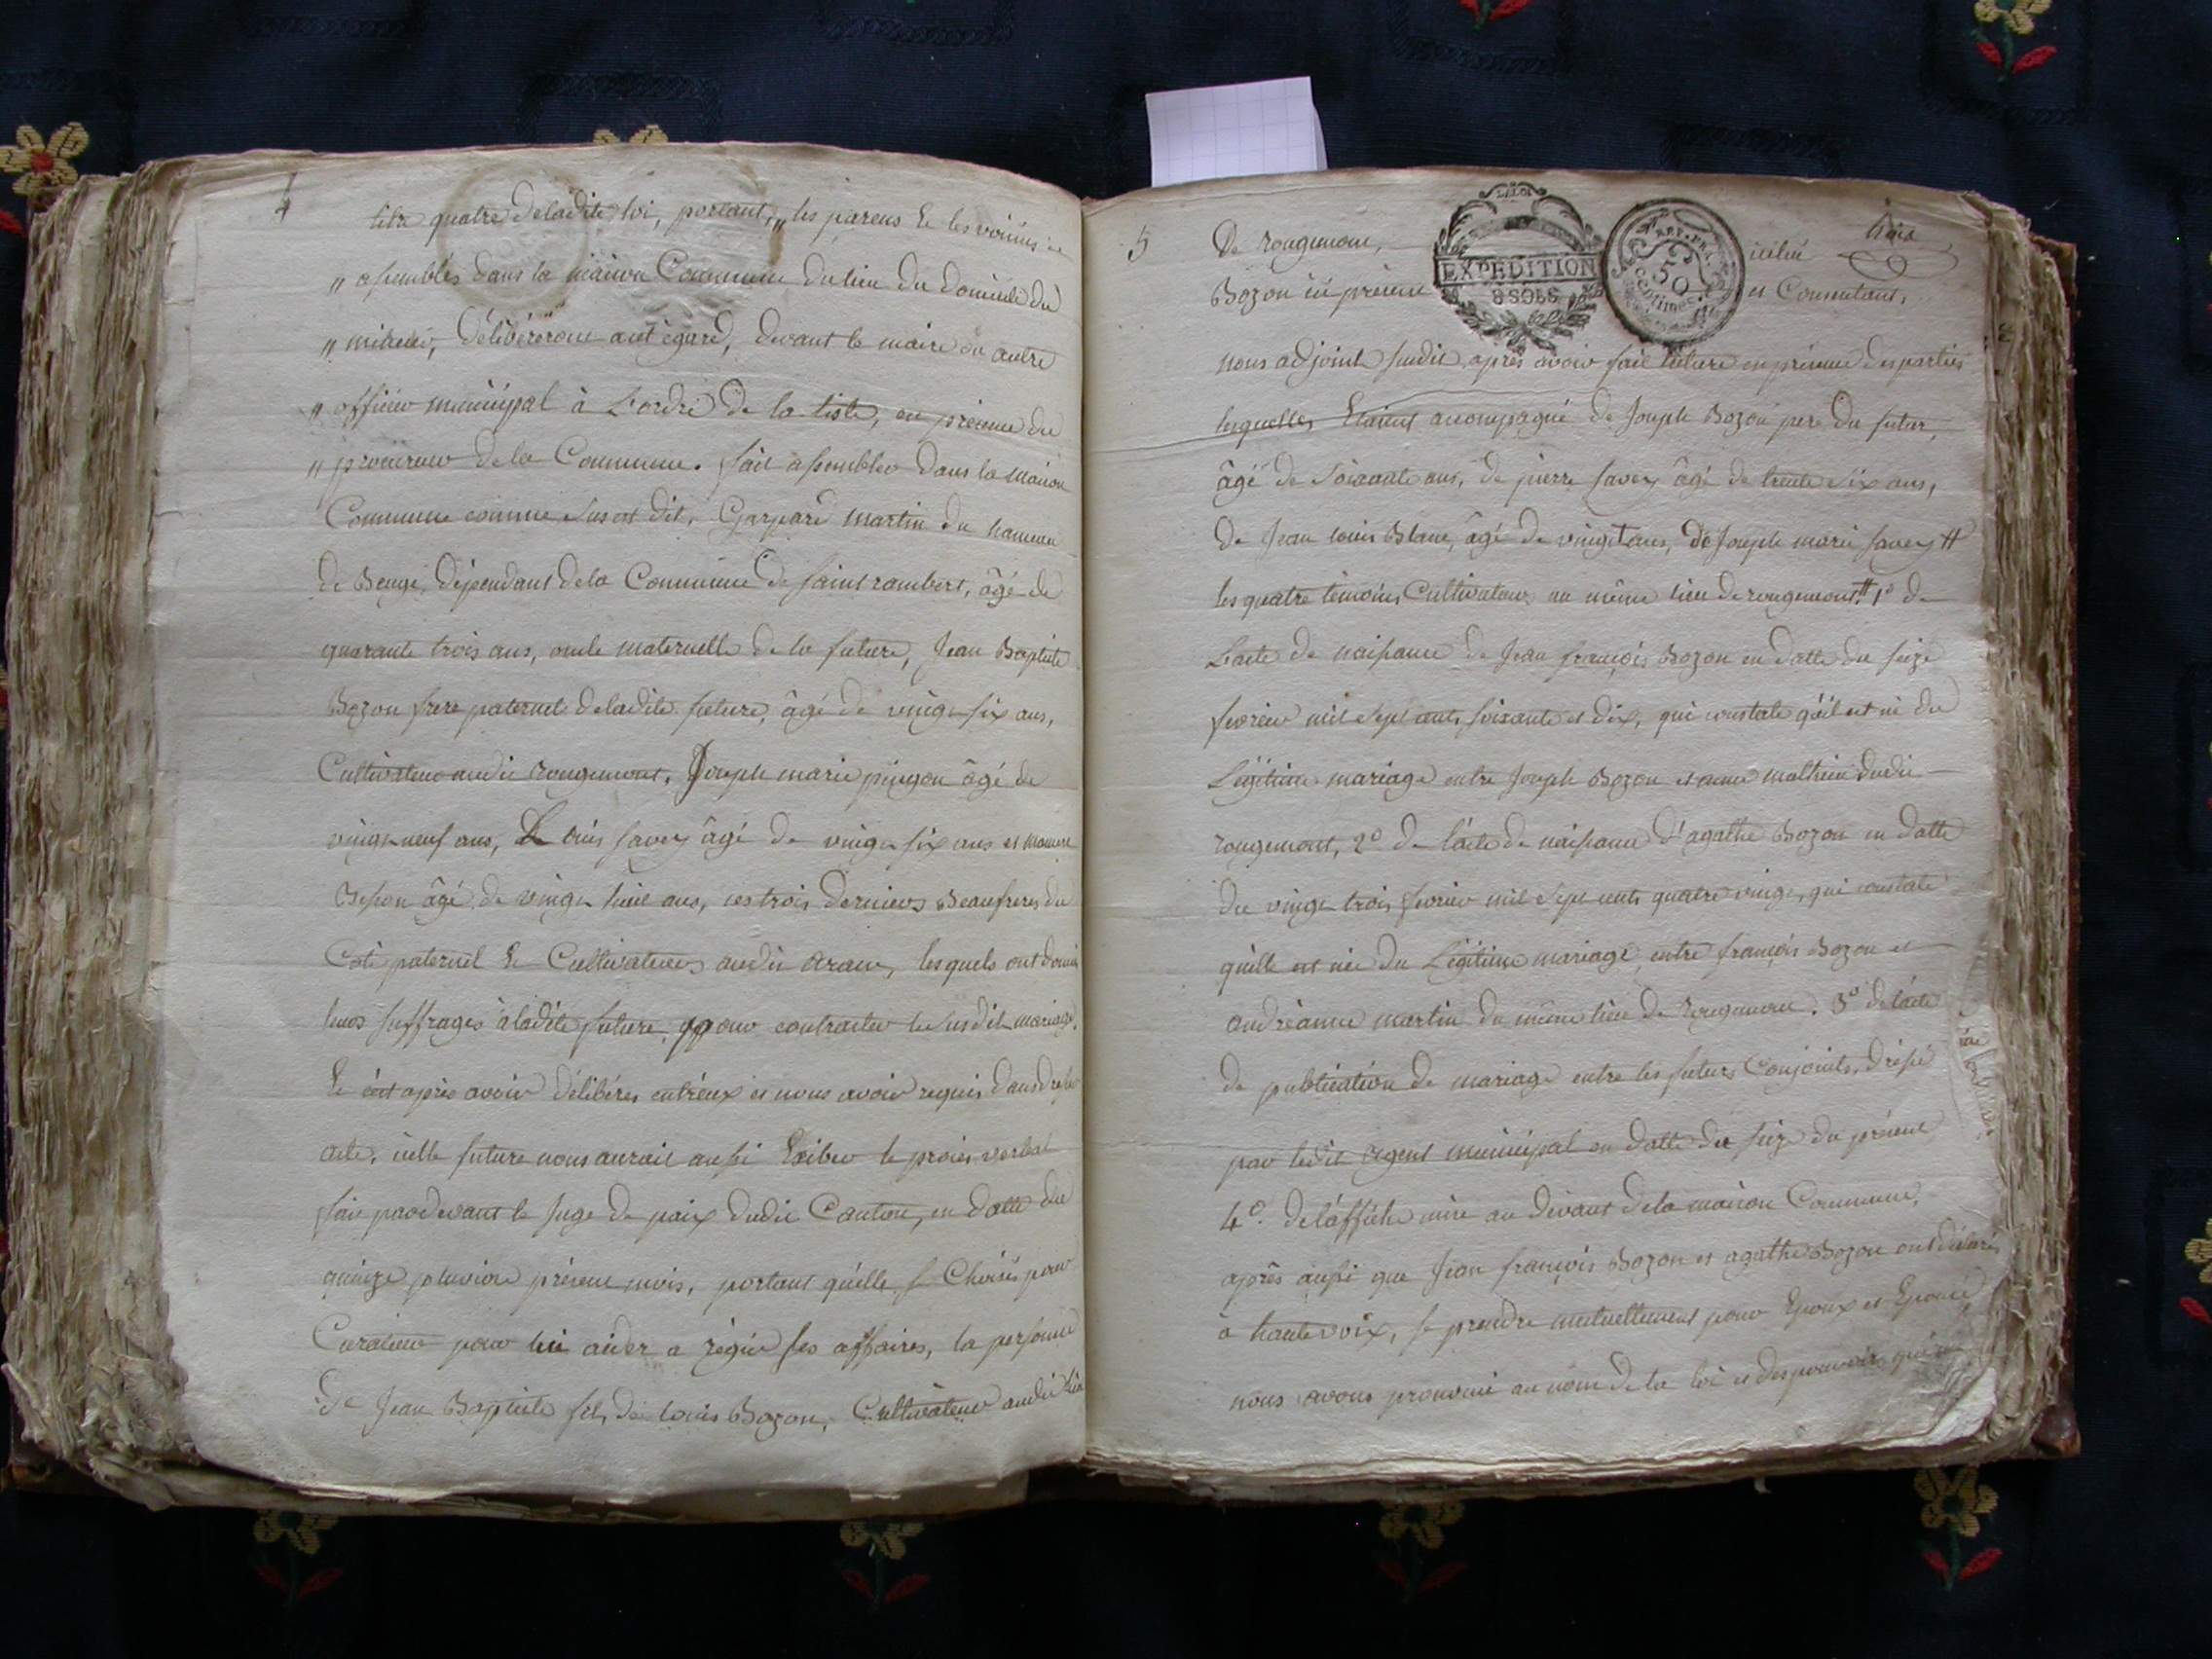 4
titre quatre deladite loi, portant, „ les parens et les voisins
„ assemblés dans la maison Commune du lieu du domicile du
„ mineur, délibéreront a cet égard, devant le maire ou autre
„ officier municipal à L'ordre de la liste, en présence du
„ procureur de la Commune. fait assembler dans la maison
Commune comme sus est dit, Gaspard martin du hameau
de Dépendant dela Commune de saint rambert, âgé de
quarante trois ans, oncle maternelle de la future, Jean Baptiste
Bozon frere paternel deladite future, âgé de vingt six ans,
Cultivateur audit rougemont, Joseph marie pingon âgé de
vingt neuf ans, Louis savey âgé de vingt six ans et
âgé de vingt huit ans, ces trois derniers Beaufreres du
Coté paternel et Cultivateurs audit aran, lesquels ont donné
leurs suffrages à ladite future, pour contracter le susdit mariage.
et cest après avoir délibérés entréux et nous avoir requis dans
acte, icelle future nous aurait aussi Exiber le procès verbal
fait pardevant le juge de paix dudit Canton, en datte du
quinze pluviose présent mois, portant quélle se Choisit pour
Curateur pour lui aider a régir ses affaires, la personne
de Jean Baptiste fils de louis Bozon, Cultivateur audit lieu
5
trois
De rougemont,
LA LOI
EXPEDITION
8 SOLS
50
centimes
Bozon ici présent et Consentant,
nous adjoint susdit après avoir fait lecture en présence des parties
lesquelles Etaient accompagné de Joseph Bozon pere du futur,
âgé de soixante ans, de pierre savey âgé de trente six ans,
de Jean louis Blanc, âgé de vingt ans, de Joseph marie savey #
les quatre témoins Cultivateurs au même lieu de rougemont # 1º de
Lacte de naissance de Jean françois Bozon en datte du seize
fevrier mil sept cents soixante et dix, qui constate quil est né du
Légitime mariage entre Joseph Bozon et anne mathieu dudit
rougemont, 2º de lácte de naissance d'agathe Bozon en datte
du vingt trois fevrier mil sept cents quatre vingt, qui constate
quélle est née du Légitime mariage entre françois Bozon et
andréanne martin du même lieu de rougemont. 3º de lácte
de publication de mariage entre les futurs Conjoints, dressé
par ledit agent municipal en datte du seize du présent
4º. de láffiche mise au devant dela maison Commune.
après aussi que Jean françois Bozon et agathe Bozon ont déclarés
à haute voix, se prendre mutuellement pour Epoux et Epouse
nous avons prononcé au nom de la loi et des pouvoirs qui